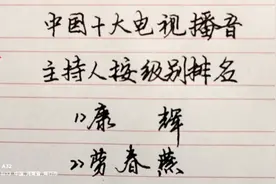 中国十大电视播音
主持人按级别排名
1)康 辉
2)剪春燕